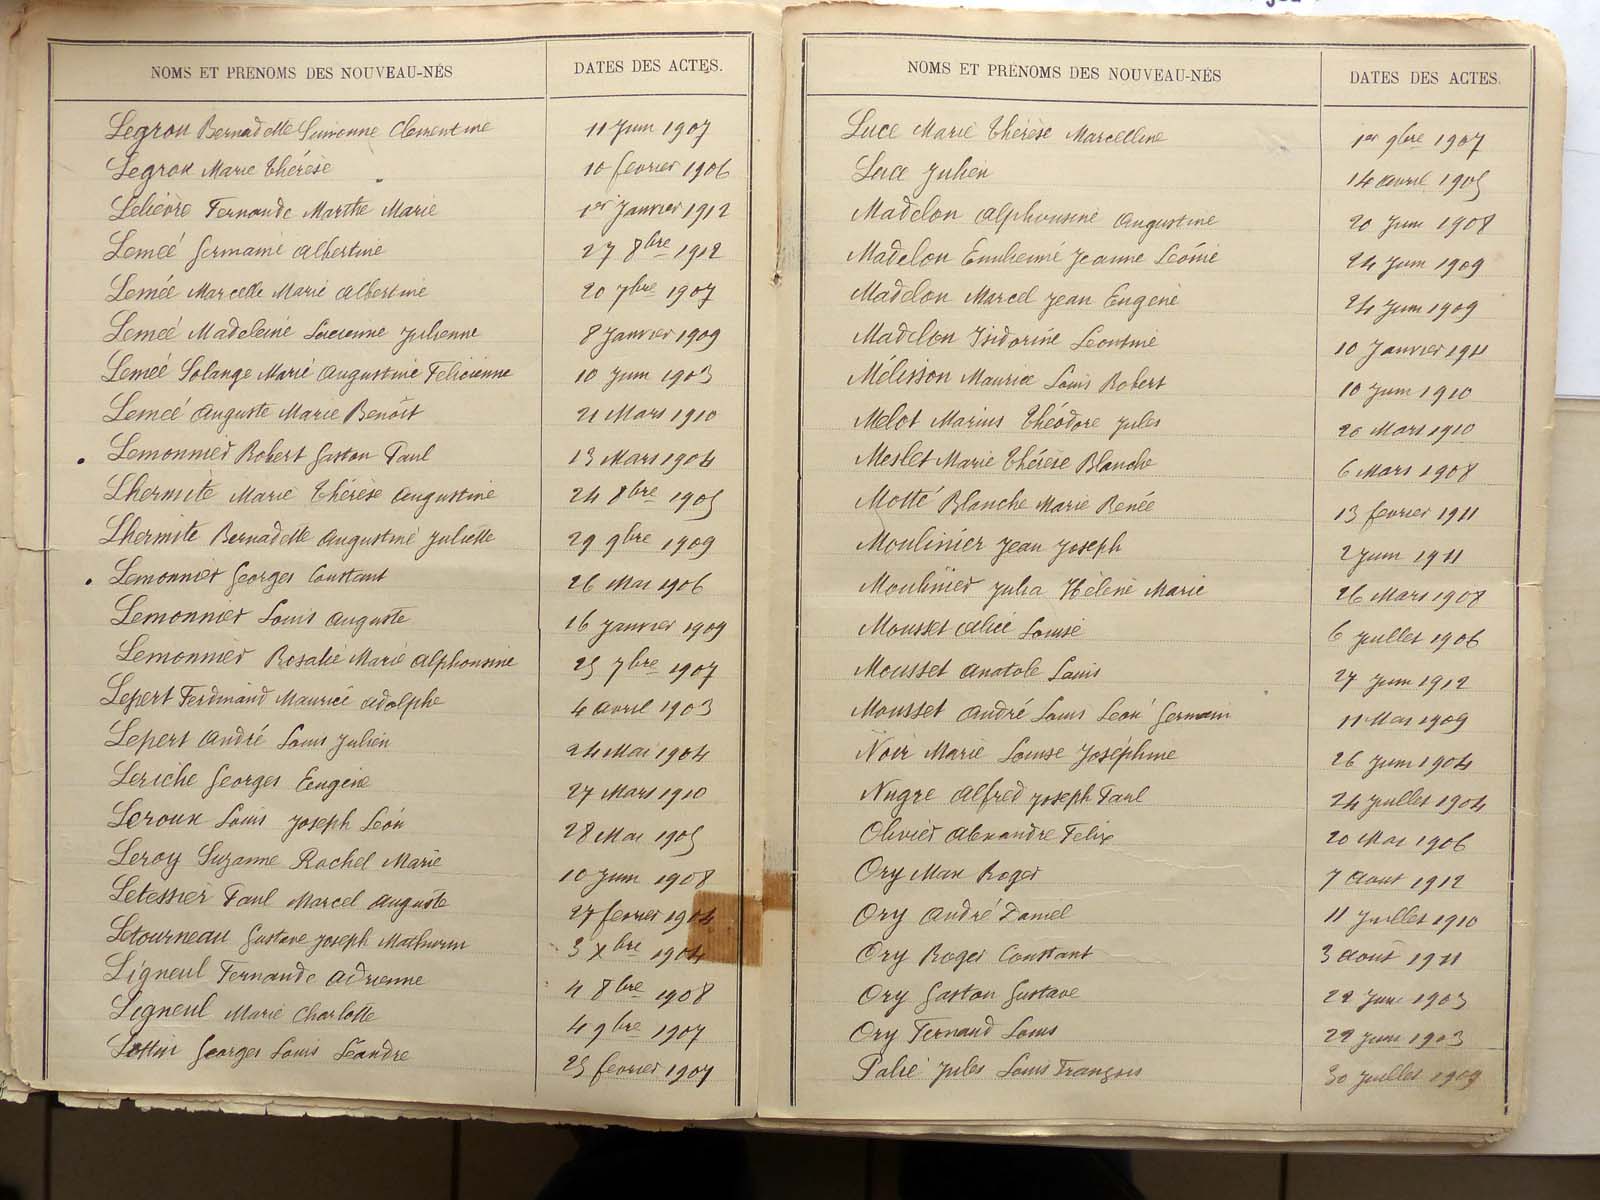 NOMS ET PRENOMS DES NOUVEAU-NÉS DATES DES ACTES.
Legrou Bernadette Simonne Clementine 11 Juin 1907
Legrou Marie thérèse 10 fevrier 1906
Lelièvre Fernande Marthe Marie 1er Janvier 1912
Lemeé Germaine Albertine 27 8bre 1912
Lemée Marcelle Marie Albertine 20 7bre 1907
Lemeé Madeleine Lucienne Julienne 8 Janvier 1909
Lemeé Solange Marie Augustine Felicienne 10 Juin 1903
Lemeé Auguste Marie Benoît 21 Mars 1910
Lemonnier Robert Gaston Paul 13 Mars 1904
Lhermite Marie thérèse Augustine 24 8bre 1905
Lhermite Bernadette Augustine Juliette 29 9bre 1909
Lemonnier Georges Constant 26 Mai 1906
Lemonnier Louis Auguste 16 Janvier 1909
Lemonnier Rosalie Marie Alphonsine 25 7bre 1907
Lepert Ferdinand Maurice Adolphe 4 Avril 1903
Lepert André Louis Julien 24 Mai 1904
Leriche Georges Eugène 27 Mars 1910
Leroux Louis Joseph Léon 28 Mai 1905
Leroy Suzanne Rachel Marie 10 Juin 1908
Letessier Paul Marcel Auguste 27 fevrier 1904
Letourneau Gustave Joseph Mathurin 3 Xbre 1904
Ligneul Fernande Adrienne 4 8bre 1908
Ligneul Marie Charlotte 4 9bre 1907
Lottin Georges Louis Léandre 25 fevrier 1907
NOMS ET PRÉNOMS DES NOUVEAU-NÉS DATES DES ACTES.
Luce Marie thérèse Marcelline 1er 9bre 1907
Luce Julien 14 Avril 1905
Madelon Alphonsine Augustine 20 Juin 1908
Madelon Emilienne Jeanne Léonie 24 Juin 1909
Madelon Marcel Jean Eugene 24 Juin 1909
Madelon Isidorine Leontine 10 Janvier 1911
Mélisson Maurice Louis Robert 10 Juin 1910
Melot Marius théodore Jules 20 Mars 1910
Meslet Marie thérèse Blanche 6 Mars 1908
Motté Blanche Marie Renée 13 fevrier 1911
Moulinier Jean Joseph 2 Juin 1911
Moulinier Julia Hélène Marie 26 Mars 1908
Mousset Alice Louise 6 Juillet 1906
Mousset Anatole Louis 27 Juin 1912
Mousset André Louis Leon Germain 11 Mai 1909
Noir Marie Louise Joséphine 26 Juin 1904
Nugre Alfred Joseph Paul 24 Juillet 1904
Olivier Alexandre Felix 20 Mai 1906
Ory Max Roger 7 Aout 1912
Ory André Daniel 11 Juillet 1910
Ory Roger Constant 3 Aout 1911
Ory Gaston Gustave 22 Juin 1903
Ory Fernand Louis 22 Juin 1903
Palie Jules Louis François 30 Juillet 1909